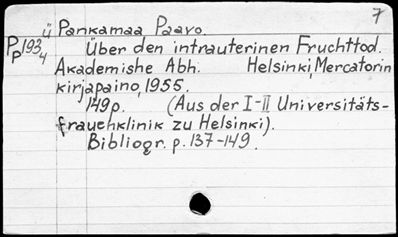 7
ü Pankamaa Paavo.
Pp193 4 Über den intrauterinen Fruchttod.
Akademishe Abh. Helsinki, Mercatorin
kirjapaino, 1955.
149p. (Aus der I-II Universitäts-
frauenklinik zu Helsinki).
Bibliogr. p. 137-149.